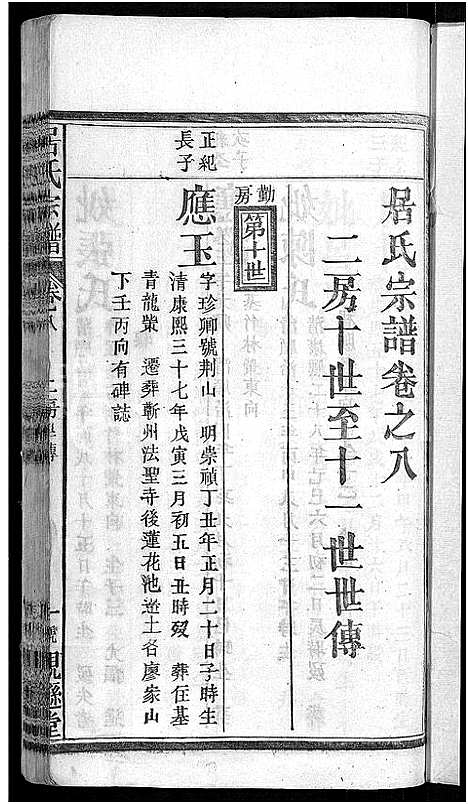 居氏宗譜卷之八
二房十世至十一世世傳
勤房
第十世
正紀
長子
應玉
字珍卿號荆山　明崇禎丁丑年正月二十日子時生
清康熙三十七年戊寅三月初五日丑時歿　葬住基
青龍嘴　遷葬蘄州法聖寺後蓮花池邊土名廖家山
下壬丙向有碑誌
居氏宗譜
卷八
二房世傳
一號